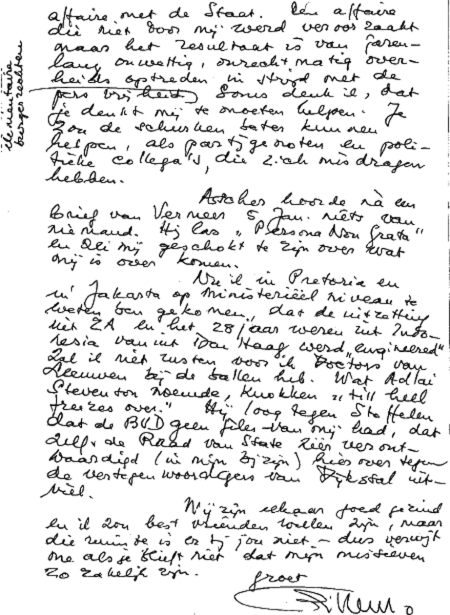 affaire met de Staat. Een affaire
die niet door mij werd veroorzaakt
maar het resultaat is van jaren-
lang onwettig, onrechtmatig over-
heids optreden in strijd met de
pers vrijheid. Soms denk ik, dat
je denkt mij te moeten helpen. Je
zou de schurken beter kunnen
helpen, als partijgenoten en poli-
tieke collega's, die zich misdragen
hebben.
elementaire
burgerrechten
Asscher hoorde na een
brief van Vermeer 5 Jan. niets van
niemand. Hij las "Persona Non Grata"
en zei mij geschokt te zijn over wat
mij is over komen.
Nu ik in Pretoria en
in Jakarta op ministerieel niveau te
weten ben gekomen, dat de uitzetting
uit ZA en het 28 jaar weren uit Indo-
nesia vanuit Den Haag werd "engineered"
zal ik niet rusten voor ik Doctors van
Leeuwen bij de ballen heb. Wat Adlai
Stevenson noemde, knokken "till hell
freezes over." Hij loog tegen Stoffelen
dat de BVD geen files van mij had, dat
zelfs de Raad van State zeer veront-
waardigd (in mijn bijzijn) hierover tegen
de vertegenwoordigers van Dijkstal uit-
viel.
Wij zijn elkaar goed gezind
en ik zou best vrienden willen zijn, maar
die ruimte is er bij jou niet - dus verwijt
me alsjeblieft niet dat mijn missieven
zo zakelijk zijn.
groet